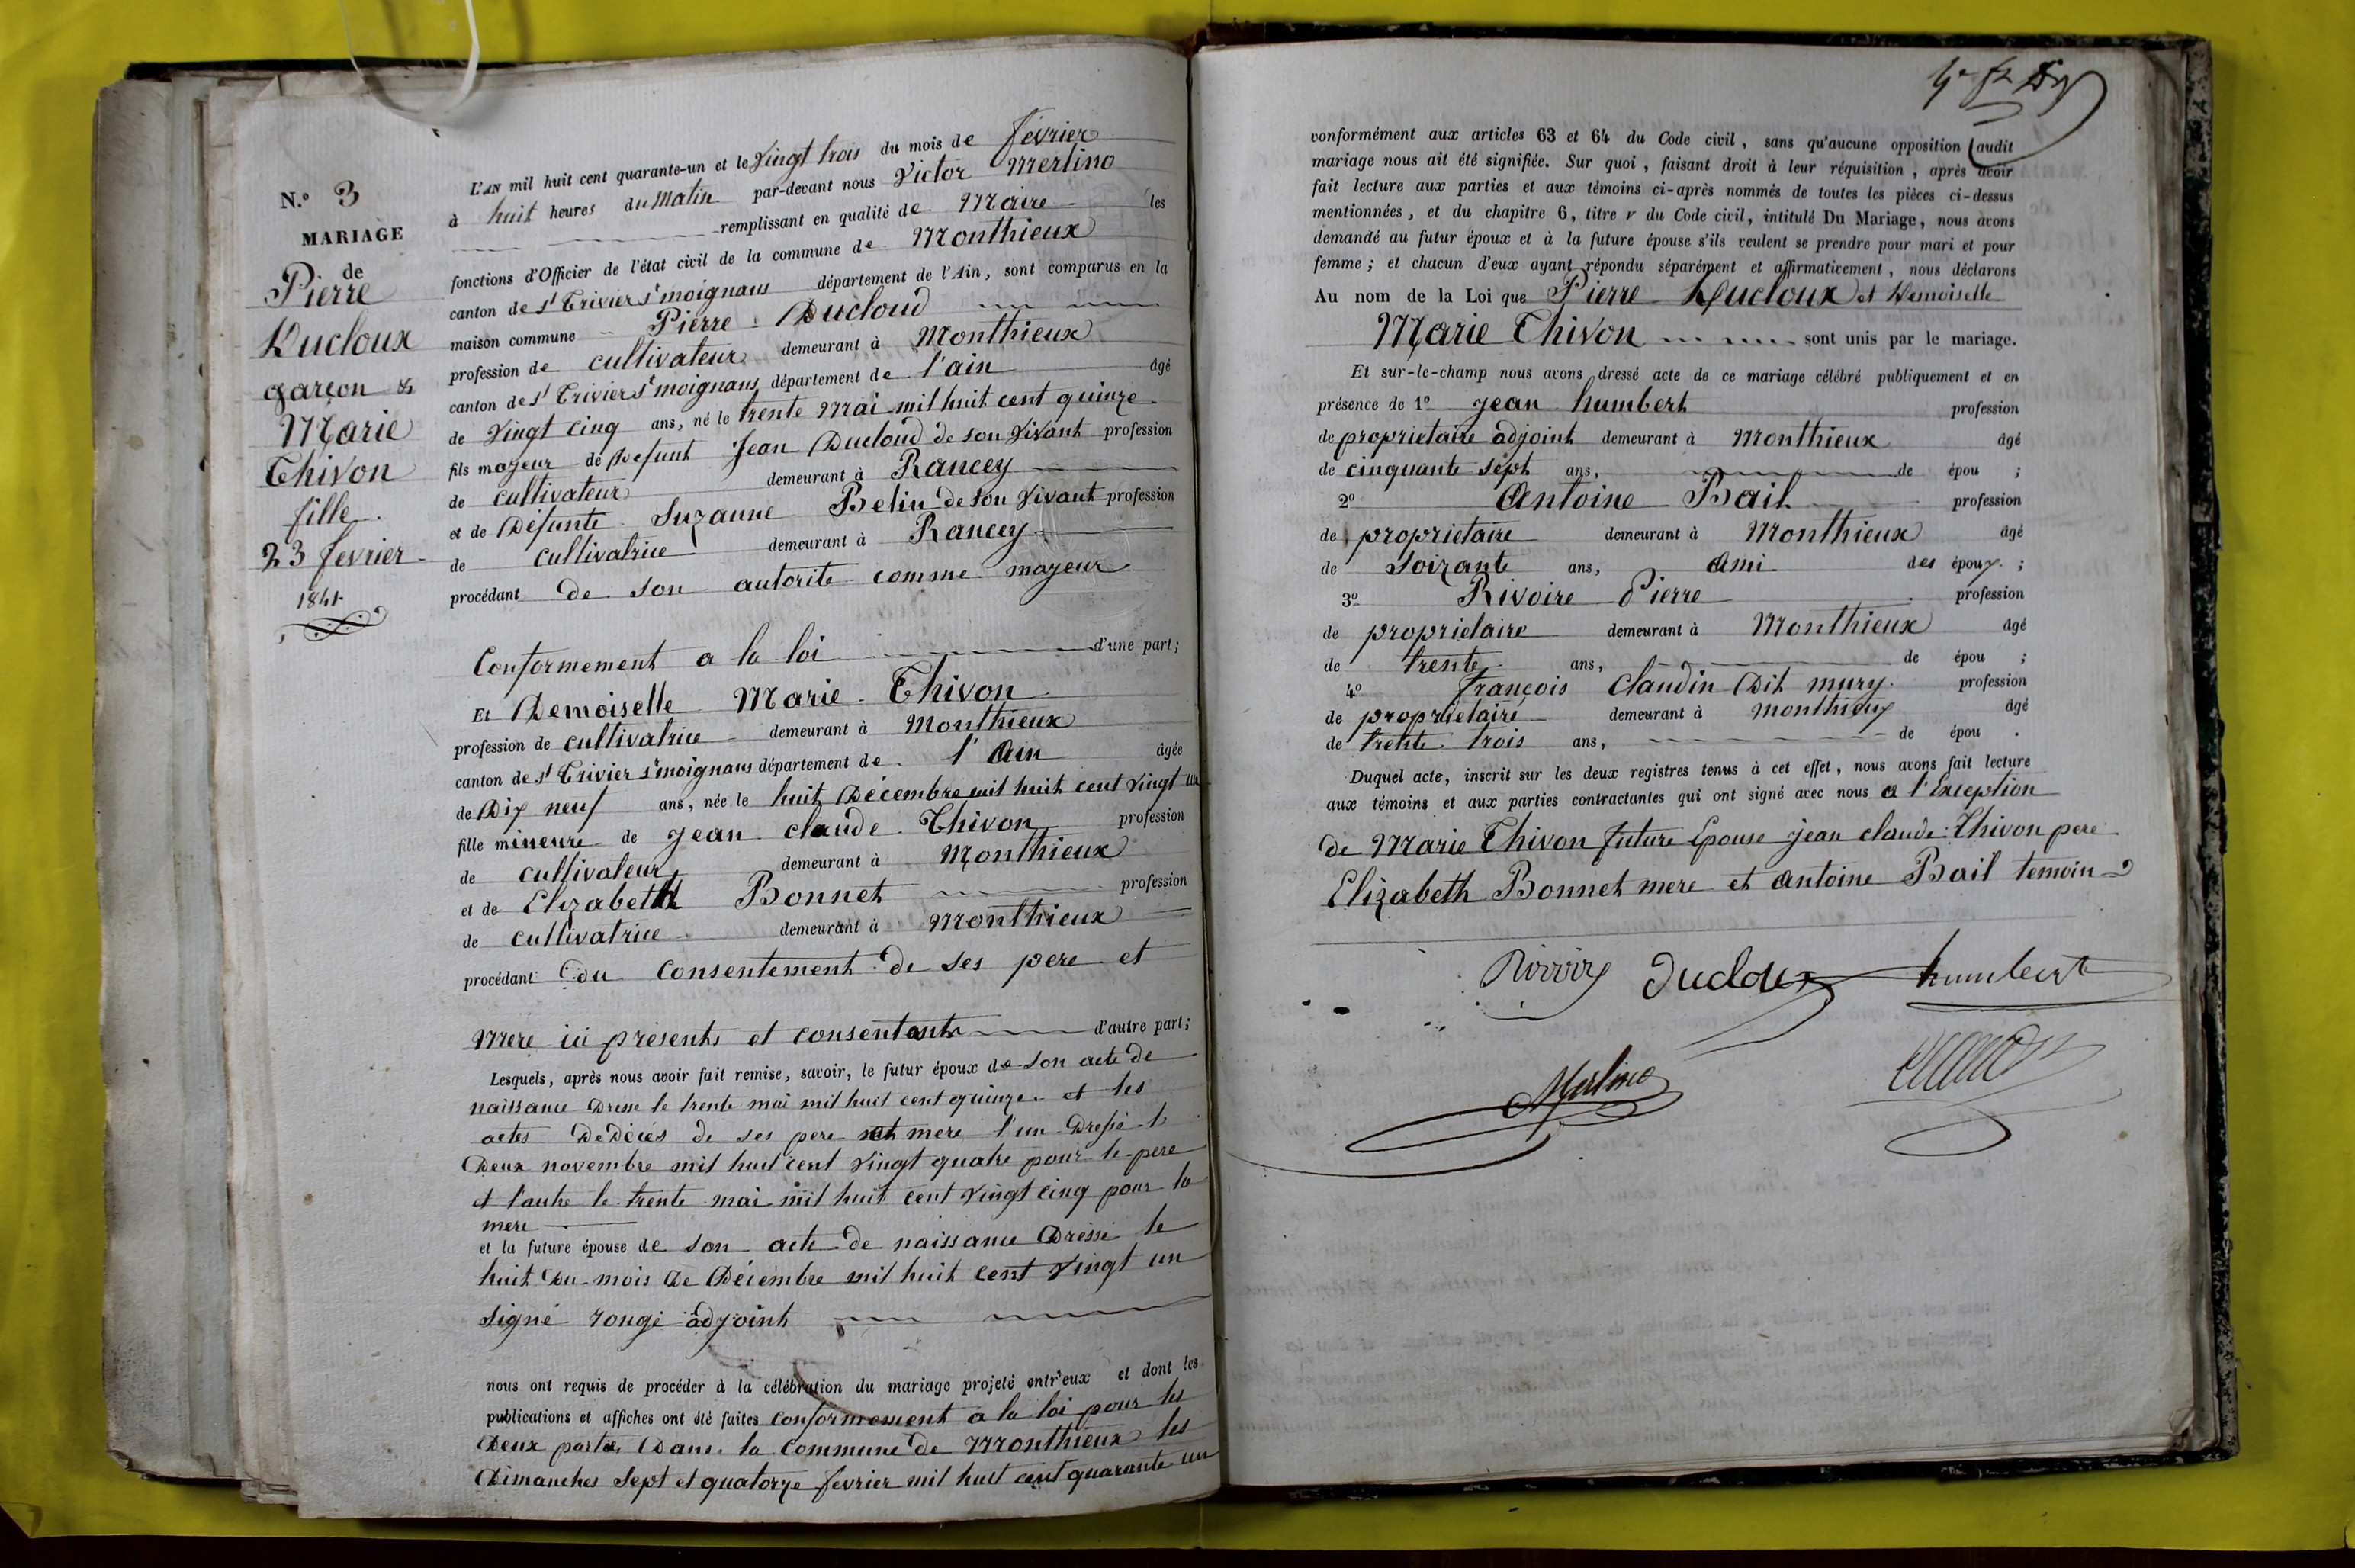 N.º 3
MARIAGE
de
Pierre
Ducloux
garçon &
Marie
Thivon
fille
23 fevrier
1841
L'AN mil huit cent quarante-un et le Vingt trois du mois de fevrier
à huit heures du matin par-devant nous Victor Merlino
remplissant en qualité de Maire les
fonctions d'Officier de l'état civil de la commune de Monthieux
canton de st Trivier st moignans département de l'Ain, sont comparus en la
maison commune Pierre Ducloud
profession de cultivateur demeurant à Monthieux
canton de st Trivier st moignans département de l'ain âgé
de Vingt cinq ans, né le trente Mai mil huit cent quinze
fils majeur de defunt Jean Ducloud de son Vivant profession
de cultivateur demeurant à Rancey
et de Défunte Suzanne Belin de son Vivant profession
de cultivatrice demeurant à Rancey
procédant de son autorite comme majeur
Conformement a la loi d'une part;
Et Demoiselle Marie Thivon
profession de cultivatrice demeurant à Monthieux
canton de st Trivier st moignans département de l'Ain âgée
de Dix neuf ans, née le huit Décembre mil huit cent Vingt un
fille mineure de jean claude Thivon profession
de cultivateur demeurant à Monthieux
et de Elizabeth Bonnet profession
de cultivatrice demeurant à Monthieux
procédant du consentement de ses pere et
Mere ici présents et consentants d'autre part;
Lesquels, après nous avoir fait remise, savoir, le futur époux de son acte de
naissance Dressé le trente mai mil huit cent quinze et les
actes De Décés de ses pere et mere l'un Dressé le
Deux novembre mil huit cent Vingt quatre pour le pere
et l'autre le trente mai mil huit cent Vingt cinq pour la
mere
et la future épouse de son acte de naissance Dressé le
huit Du mois De Décembre mil huit cent Vingt un
signé rougé adjoint
nous ont requis de procéder à la célébration du mariage projeté entr'eux et dont les
publications et affiches ont été faites conformement a la loi pour les
Deux parties Dans la Commune de Monthieux les
Dimanches Sept et quatorze fevrier mil huit cent quarante un
conformément aux articles 63 et 64 du Code civil, sans qu'aucune opposition audit
mariage nous ait été signifiée. Sur quoi, faisant droit à leur réquisition, après avoir
fait lecture aux parties et aux témoins ci-après nommés de toutes les pièces ci-dessus
mentionnées, et du chapitre 6, titre v du Code civil, intitulé Du Mariage, nous avons
demandé au futur époux et à la future épouse s'ils veulent se prendre pour mari et pour
femme; et chacun d'eux ayant répondu séparément et affirmativement, nous déclarons
Au nom de la Loi que Pierre Ducloux et Demoiselle
Marie Thivon sont unis par le mariage.
Et sur-le-champ nous avons dressé acte de ce mariage célébré publiquement et en
présence de 1º jean humbert profession
de proprietaire adjoint demeurant à Monthieux âgé
de cinquante sept ans, de épou ;
2º Antoine Bail profession
de proprietaire demeurant à Monthieux âgé
de Soixante ans, Ami des époux ;
3º Rivoire Pierre profession
de proprietaire demeurant à Monthieux âgé
de trente ans, de épou ;
4º françois Claudin Dit mury profession
de proprietaire demeurant à monthieux âgé
de trente trois ans, de épou .
Duquel acte, inscrit sur les deux registres tenus à cet effet, nous avons fait lecture
aux témoins et aux parties contractantes qui ont signé avec nous a l'Exception
de Marie Thivon future Epouse jean claude Thivon pere
Elizabeth Bonnet mere et Antoine Bail temoin
Ducloux humbert
Merlino